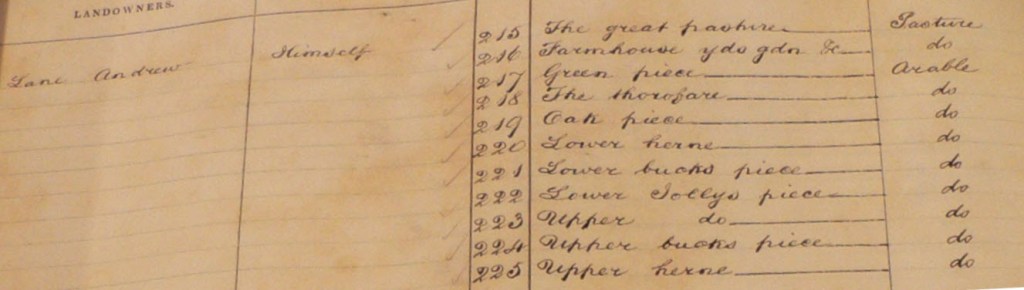 LANDOWNERS.
Lane Andrew Himself 215 The great pasture Pasture
216 Farmhouse yds gdn &c do
217 Green piece Arable
218 The thorofare do
219 Oak piece do
220 Lower herne do
221 Lower bucks piece do
222 Lower Jollys piece do
223 Upper do do
224 Upper bucks piece do
225 Upper herne do